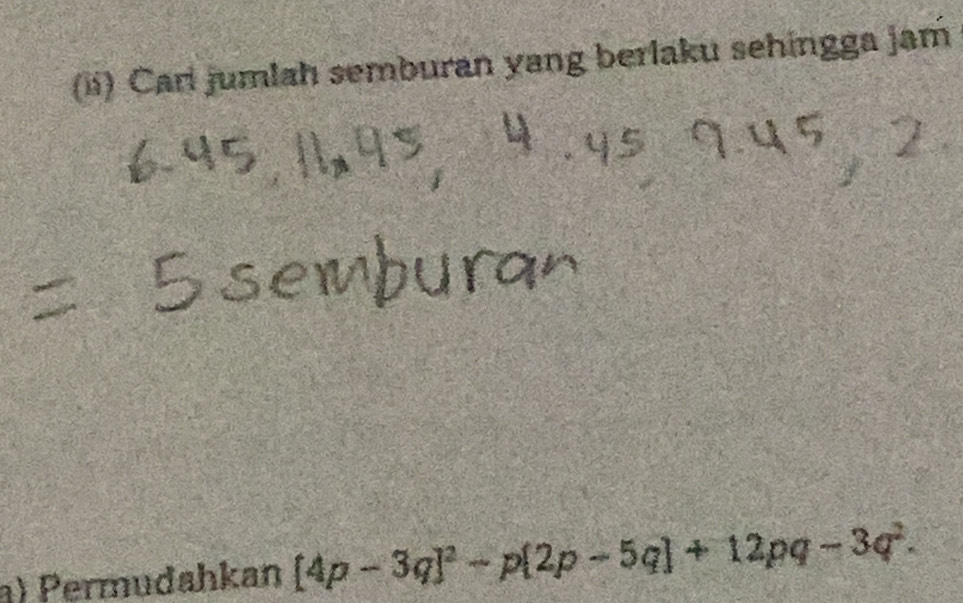 (ii) Cari jumlah semburan yang berlaku sehingga jam
6.45, 11.45, 4.45, 9.45, 2.
= 5 semburan
a) Permudahkan [4p – 3q]² – p[2p – 5q] + 12pq – 3q².